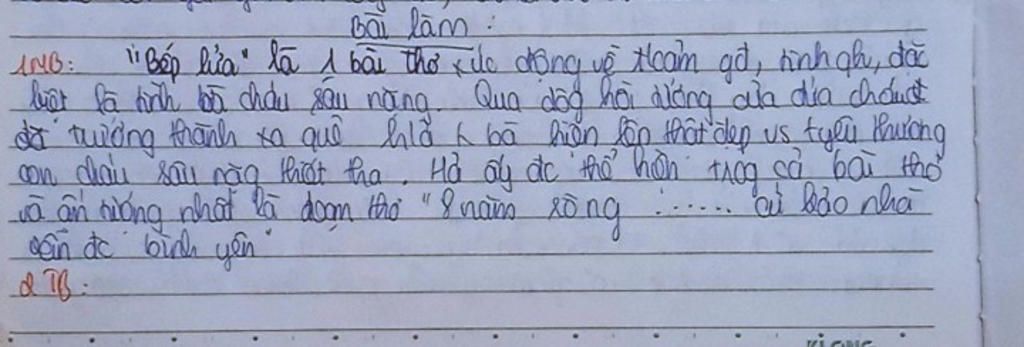 Bài làm:
1MB: "Bếp lửa" là 1 bài thơ xúc động về t/cảm gđ, tình qh, đặc
biệt là tình bà cháu sâu nặng. Qua dòg hồi tưởng của đứa cháu
đã trưởng thành xa quê h/ả bà hiện lên thật đẹp vs t/yêu thương
con cháu sâu nặg thiết tha. H/ả ấy đc thể hiện trog cả bài thơ
và ấn tượng nhất là đoạn thơ "8 năm ròng ...... cứ bảo nhà
vẫn đc bình yên"
2 TB: